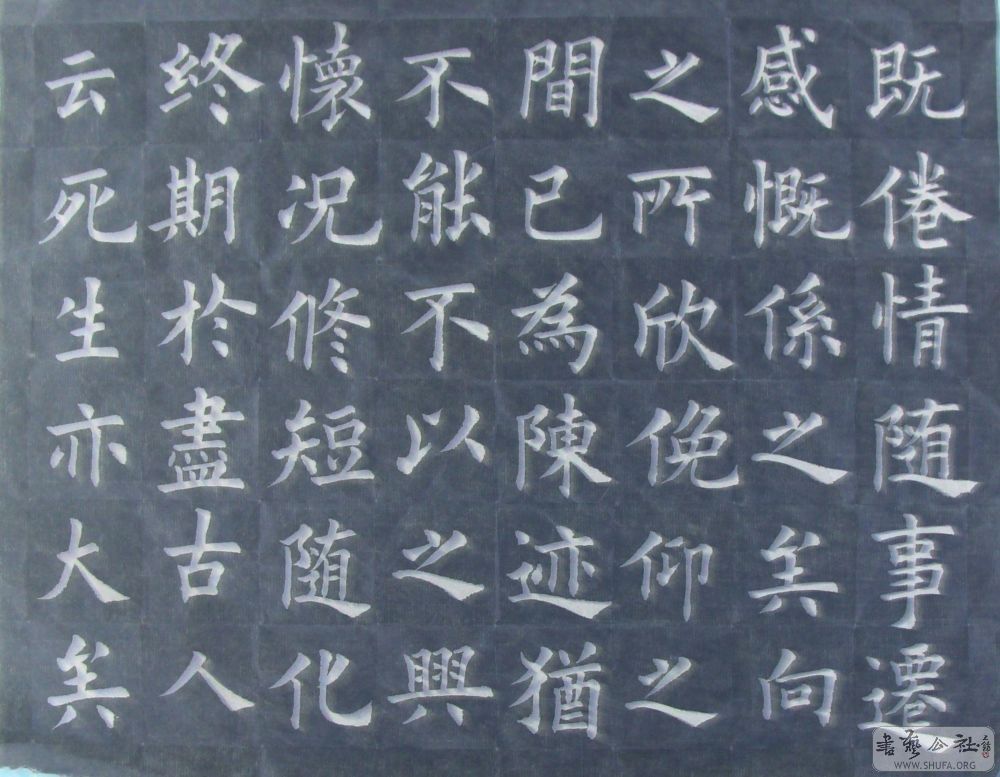 既倦情随事遷
感慨係之矣向
之所欣俛仰之
間已為陳迹猶
不能不以之興
懷况脩短随化
終期於盡古人
云死生亦大矣
書藝公社
WWW.SHUFA.ORG